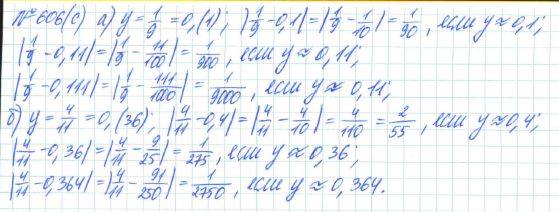 № 606(с) а) y = 1/9 = 0,(1); |1/9 - 0,1| = |1/9 - 1/10| = 1/90, если y ≈ 0,1;
|1/9 - 0,11| = |1/9 - 11/100| = 1/900, если y ≈ 0,11;
|1/9 - 0,111| = |1/9 - 111/1000| = 1/9000, если y ≈ 0,11;
б) y = 4/11 = 0,(36); |4/11 - 0,4| = |4/11 - 4/10| = 4/110 = 2/55, если y ≈ 0,4;
|4/11 - 0,36| = |4/11 - 9/25| = 1/275, если y ≈ 0,36;
|4/11 - 0,364| = |4/11 - 91/250| = 1/2750, если y ≈ 0,364.